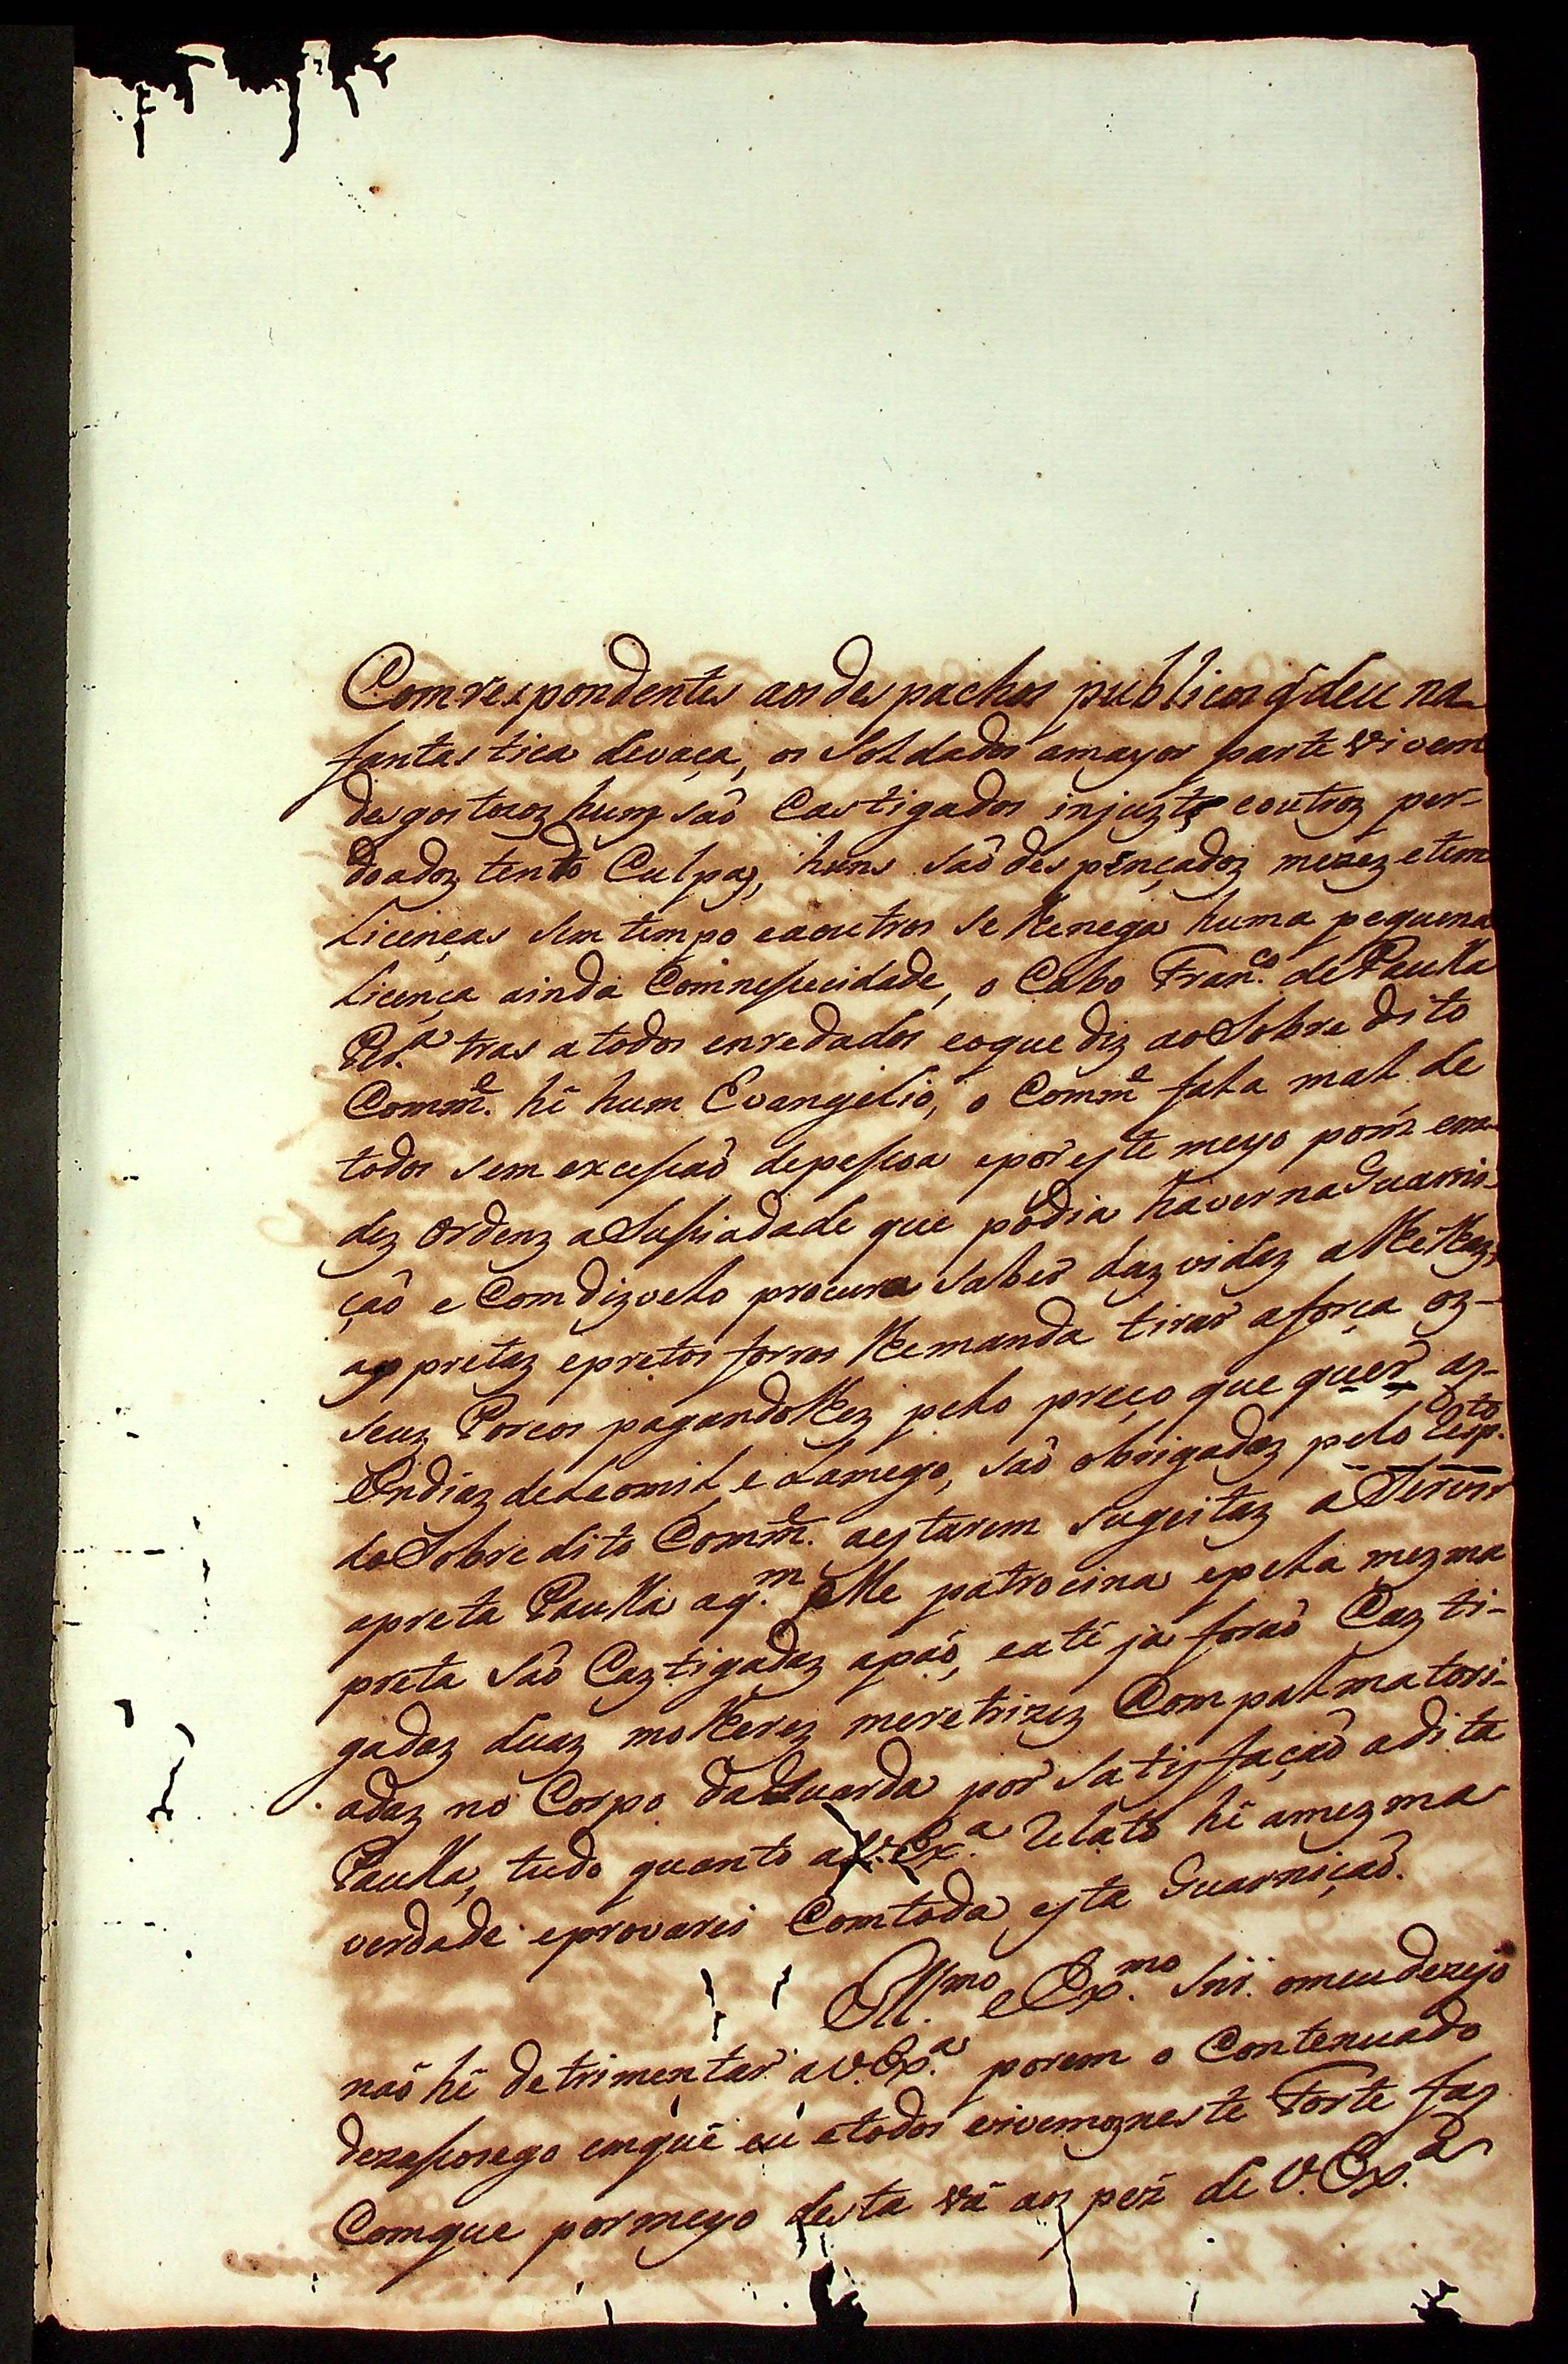 Comrespondentes aos despachos publicos q̃ deu na
fantastica devaça, os Soldados amayor parte vivem
desgostozoz huns saõ Castigados injuzte eoutroz per-
doados tendo Culpaz, huns saõ despençadoz mezez etem
Licenças sem tempo eaoutros se lhenega huma pequena
Licença ainda Comnesecidade, o Cabo Fran.co de Paulla
Per.a tras atodos enredados eoque diz aoSobre dito
Comm.e hé hum Evangelio, o Comm.e fala mal de
todos sem excessaõ depessoa epor este meyo poim em-
dez ordenz aSussiadade que podia haver na Guarni-
çaõ e Comdizvelo procura saber daz vidaz alheyaz,
az pretaz epretos forros lhemanda tirar aforça oz-
seuz Porcos pagandolhez pelo preço que quer, az-
Indiaz deLeomil, e Lamego, saõ obrigadaz pelo resp.to
doSobredito Comm.e aestarem sugeitaz a Servir
apreta Paulla aq.m elle patrocina epela mezma
preta saõ Caztigadaz apáo, eaté já foraõ Cazti-
gadaz duaz molherez meretrizez Compalmatori-
adaz no Corpo daGuarda por satisfaçaõ adita
Paulla, tudo quanto aV.Ex.a relato hé amezma
verdade eprovarei Comtoda esta Guarniçaõ.
Ill.mo e Ex.mo Snr. omeudezejo
naõ hé detrimentar aV.Ex.a porem o Contenuado
dezassosego emque eu etodos vivemoz neste Forte faz
Comque pormeyo desta vá aoz péz de V.Ex.a